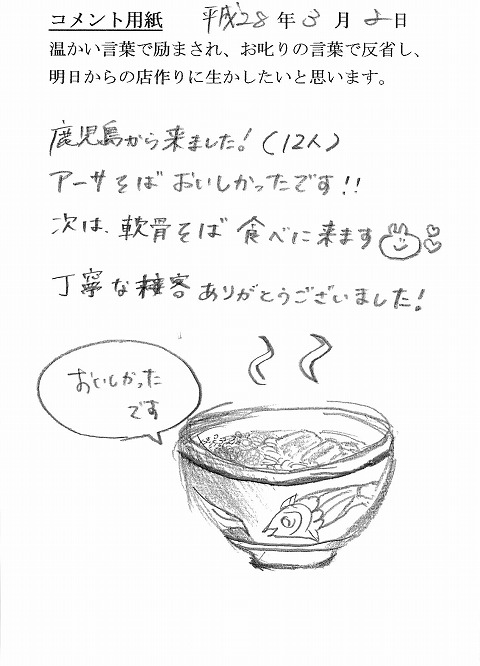 コメント用紙 平成28年3月2日
温かい言葉で励まされ、お叱りの言葉で反省し、
明日からの店作りに生かしたいと思います。
鹿児島から来ました!(12人)
アーサそばおいしかったです!!
次は、軟骨そば食べに来ます
丁寧な接客ありがとうございました!
おいしかった
です